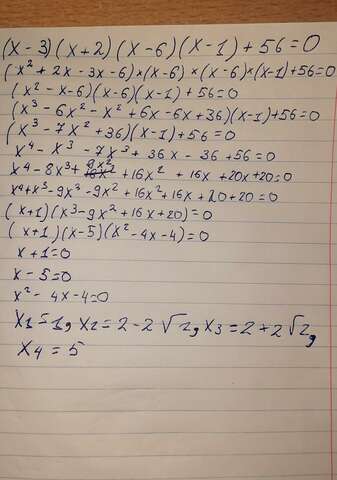 (x-3)(x+2)(x-6)(x-1)+56=0
(x²+2x-3x-6)×(x-6)×(x-6)×(x-1)+56=0
(x²-x-6)(x-6)(x-1)+56=0
(x³-6x²-x²+6x-6x+36)(x-1)+56=0
(x³-7x²+36)(x-1)+56=0
x⁴-x³-7x³+36x-36+56=0
x⁴-8x³+9x²+16x²+16x+20x+20=0
x⁴+x³-9x³-9x²+16x²+16x+20+20=0
(x+1)(x³-9x²+16x+20)=0
(x+1)(x-5)(x²-4x-4)=0
x+1=0
x-5=0
x²-4x-4=0
x1=1, x2=2-2√2, x3=2+2√2,
x4=5